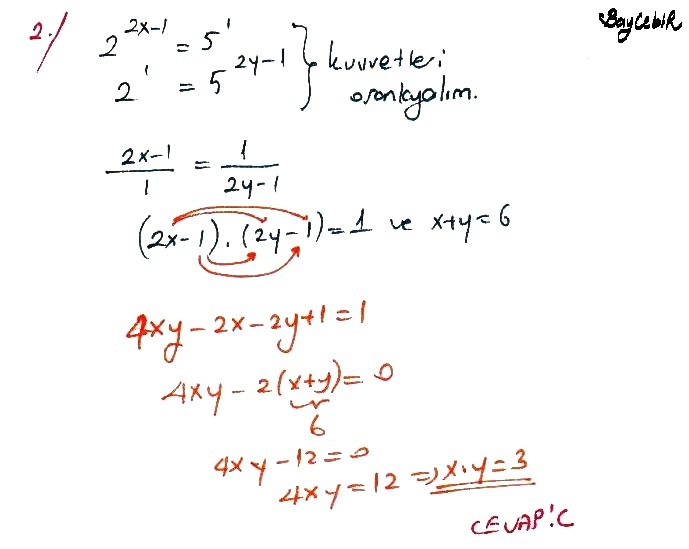 BayCebiR
2.) 2^(2x-1) = 5^1
2^1 = 5^(2y-1) } kuvvetleri
oranlıyalım.
(2x-1)/1 = 1/(2y-1)
(2x-1).(2y-1)=1 ve x+y=6
4xy-2x-2y+1=1
4xy-2(x+y)=0
6
4xy-12=0
4xy=12 => x.y=3
CEVAP:C